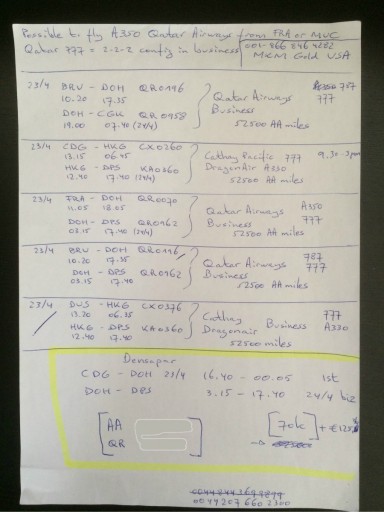 Possible to fly A350 Qatar Airways from FRA or MUC
Qatar 777 = 2-2-2 config in business
001-866 846 4282
MKM Gold USA
23/4 BRU - DOH QR0196 Qatar Airways 787
10.20 17.35 Business 777
DOH - CGK QR 0958
19.00 07.40 (24/4) 52500 AA miles
23/4 CDG - HKG CX0260 Cathay Pacific 777 9.30
13.15 06.45 DragonAir A330
HKG - DPS KA0360
12.40 17.40 (24/4) 52500 AA miles
23/4 FRA - DOH QR0070 Qatar Airways A350
11.05 18.05 Business 777
DOH - DPS QR0962
03.15 17.40 (24/4) 52500 AA miles
23/4 BRU - DOH QR0196 Qatar Airways 787
10.20 17.35 Business 777
DOH - DPS QR0962
03.15 17.40 52500 AA miles
23/4 DUS - HKG CX0376 Cathay 777
13.20 06.35 Dragonair Business A330
HKG - DPS KA0360
12.40 17.40 52500 miles
Denpasar
CDG - DOH 23/4 16.40 - 00.05 1st
DOH - DPS 3.15 - 17.40 24/4 biz
AA
QR
70k + €125
00442076602300